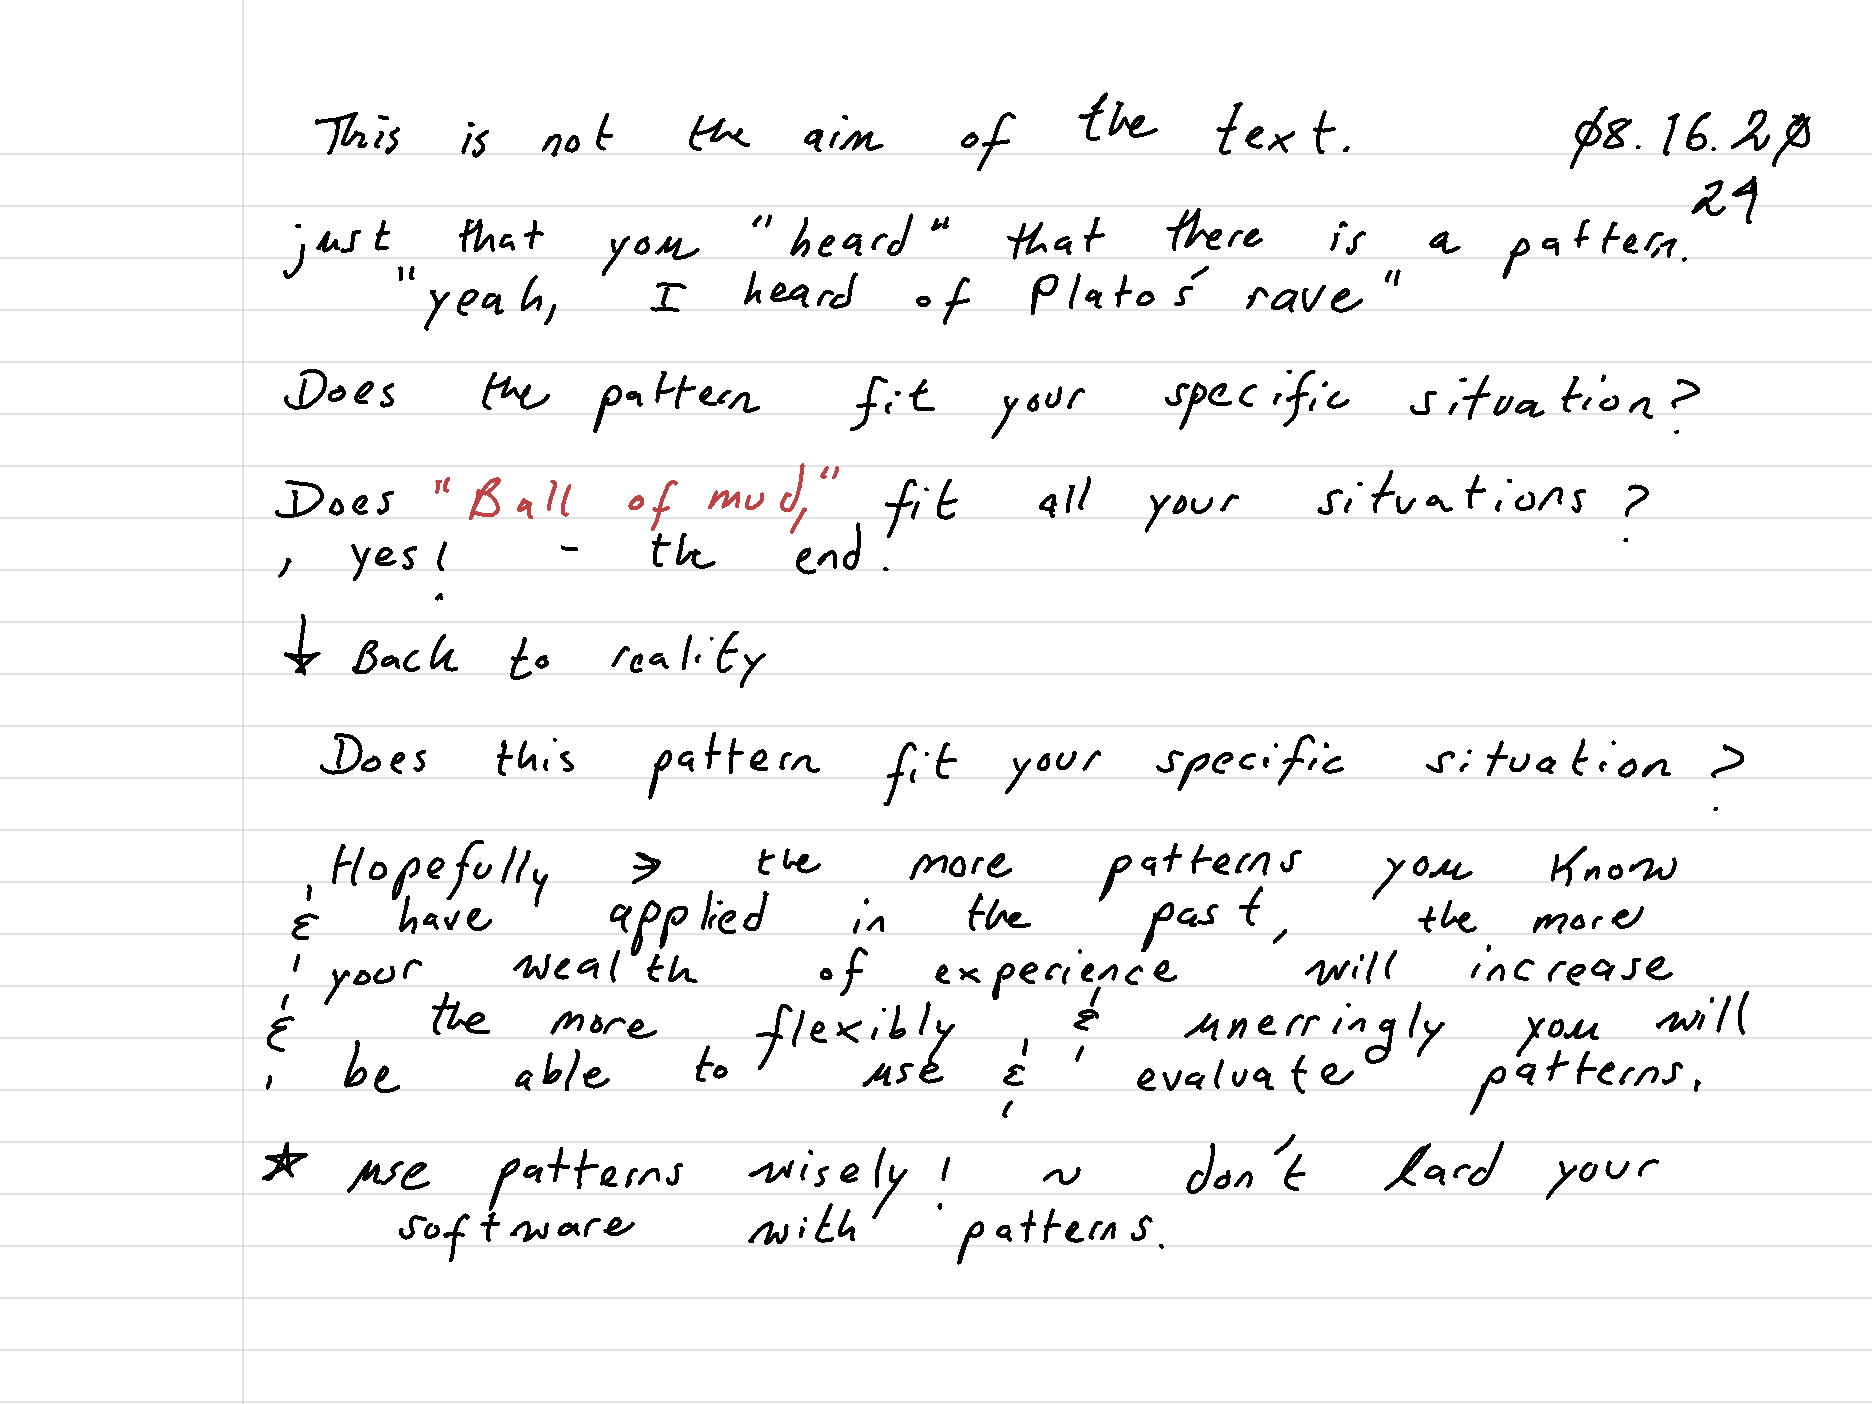 This is not the aim of the text. 08.16.20
24
just that you "heard" that there is a pattern.
"yeah, I heard of Plato's rave"
Does the pattern fit your specific situation?
Does "Ball of mud," fit all your situations?
, yes! - the end.
↓ Back to reality
Does this pattern fit your specific situation?
Hopefully → the more patterns you know
& have applied in the past, the more
your wealth of experience will increase
& the more flexibly & unerringly you will
be able to use & evaluate patterns.
☆ use patterns wisely! ~ don't lard your
software with patterns.